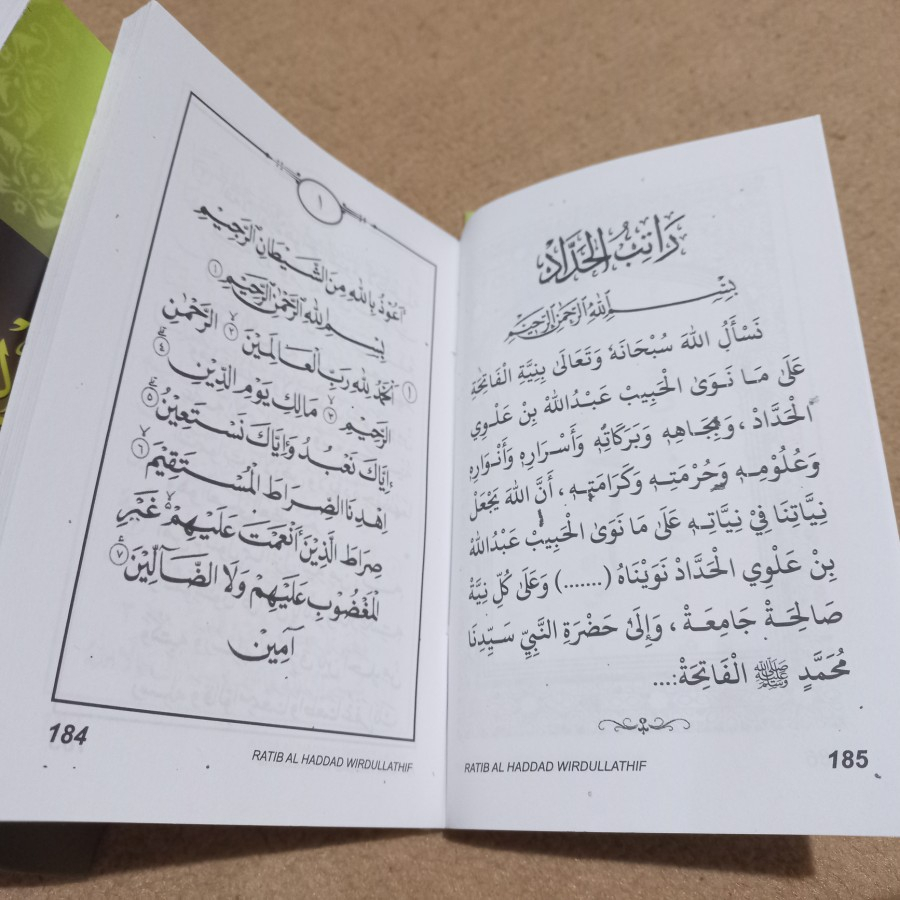 ١
اَعُوْذُ بِاللهِ مِنَ الشَّيْطَانِ الرَّجِيْمِ
بِسْمِ اللهِ الرَّحْمٰنِ الرَّحِيْمِ ١
١ اَلْحَمْدُ لِلّٰهِ رَبِّ الْعَالَمِيْنَ ٢ الرَّحْمٰنِ
الرَّحِيْمِ ٣ مَالِكِ يَوْمِ الدِّيْنِ ٤
اِيَّاكَ نَعْبُدُ وَاِيَّاكَ نَسْتَعِيْنُ ٥
اِهْدِنَا الصِّرَاطَ الْمُسْتَقِيْمَ ٦
صِرَاطَ الَّذِيْنَ اَنْعَمْتَ عَلَيْهِمْ غَيْرِ
الْمَغْضُوْبِ عَلَيْهِمْ وَلَا الضَّآلِّيْنَ ٧
آمِيْن
184
RATIB AL HADDAD WIRDULLATHIF
رَاتِبُ الْحَدَّادْ
بِسْمِ اللهِ الرَّحْمٰنِ الرَّحِيْمِ
نَسْأَلُ اللهَ سُبْحَانَهُ وَتَعَالَى بِنِيَّةِ الْفَاتِحَةِ
عَلَى مَا نَوَى الْحَبِيبْ عَبْدُاللهِ بِنْ عَلْوِي
الْحَدَّادْ، وَبِجَاهِهِ وَبَرَكَاتِهِ وَأَسْرَارِهِ وَأَنْوَارِهِ
وَعُلُوْمِهِ وَحُرْمَتِهِ وَكَرَامَتِهِ، أَنَّ اللهَ يَجْعَلْ
نِيَّاتِنَا فِيْ نِيَّاتِهِ عَلَى مَا نَوَى الْحَبِيبْ عَبْدُاللهْ
بِنْ عَلْوِي الْحَدَّادْ نَوَيْنَاهُ (.......) وَعَلَى كُلِّ نِيَّةْ
صَالِحَةْ جَامِعَةْ، وَإِلَى حَضْرَةِ النَّبِيِّ سَيِّدِنَا
مُحَمَّدٍ ﷺ الْفَاتِحَةْ:...
RATIB AL HADDAD WIRDULLATHIF
185